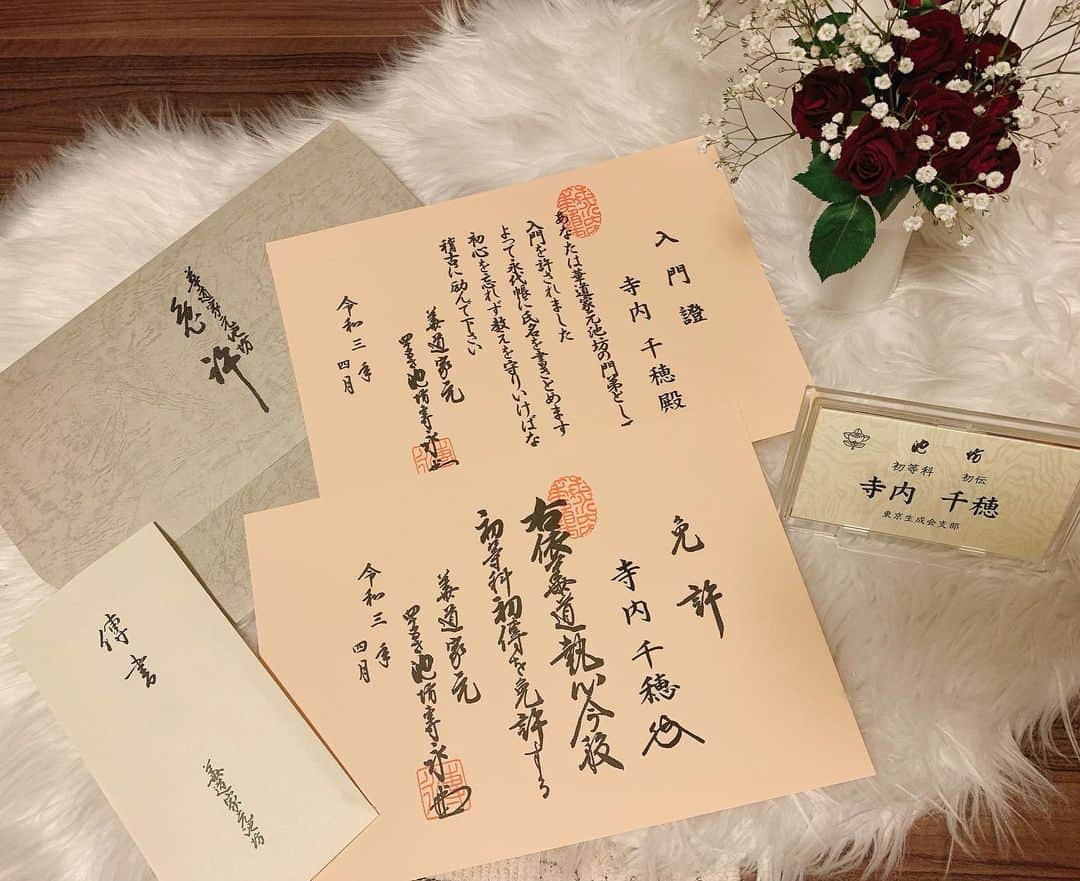 華道家元池坊
免許
入門證
寺内千穂殿
あなたは華道家元池坊の門弟とし
入門を許されました
よって永代帳に氏名を書きとめます
初心を忘れず教えを守りいけばな
稽古に励んで下さい
華道家元
四十五世池坊専永
令和三年
四月
免許
寺内千穂殿
右依華道執心今般
初等科初傳を免許する
華道家元
四十五世池坊専永
令和三年
四月
池坊
初等科 初伝
寺内 千穂
東京生成会支部
傳書
華道家元池坊